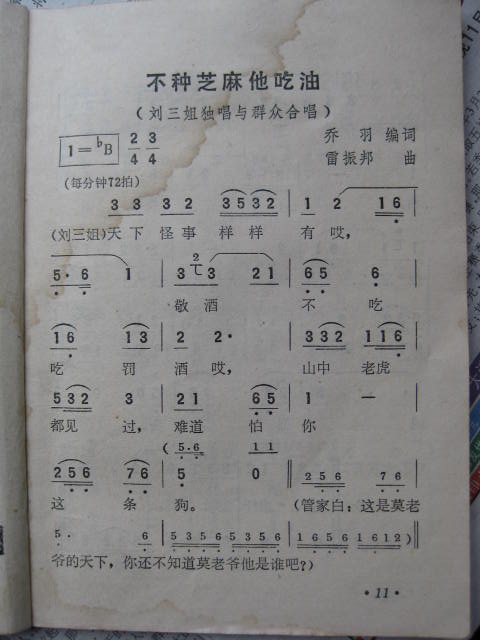 不种芝麻他吃油
（刘三姐独唱与群众合唱）
1=♭B 2/4 3/4 乔羽 编词
（每分钟72拍） 雷振邦 曲
3 3 3 2 3532 | 1 2 16
(刘三姐)天下 怪事 样样 有哎，
5·6 1 | 3 3 2 21 | 65 6
敬酒 不吃
16 13 | 2 2· | 332 116
吃 罚 酒哎， 山中 老虎
532 3 | 21 65 | 1 —
都见 过， 难道 怕 你
(5·6 11
256 76 | 5 0 ‖ 256 76
这 条 狗。 (管家白：这是莫老
5· 6 | 5356 5356 | 1656 1612)‖
爷的天下，你还不知道莫老爷他是谁吧？)
·11·